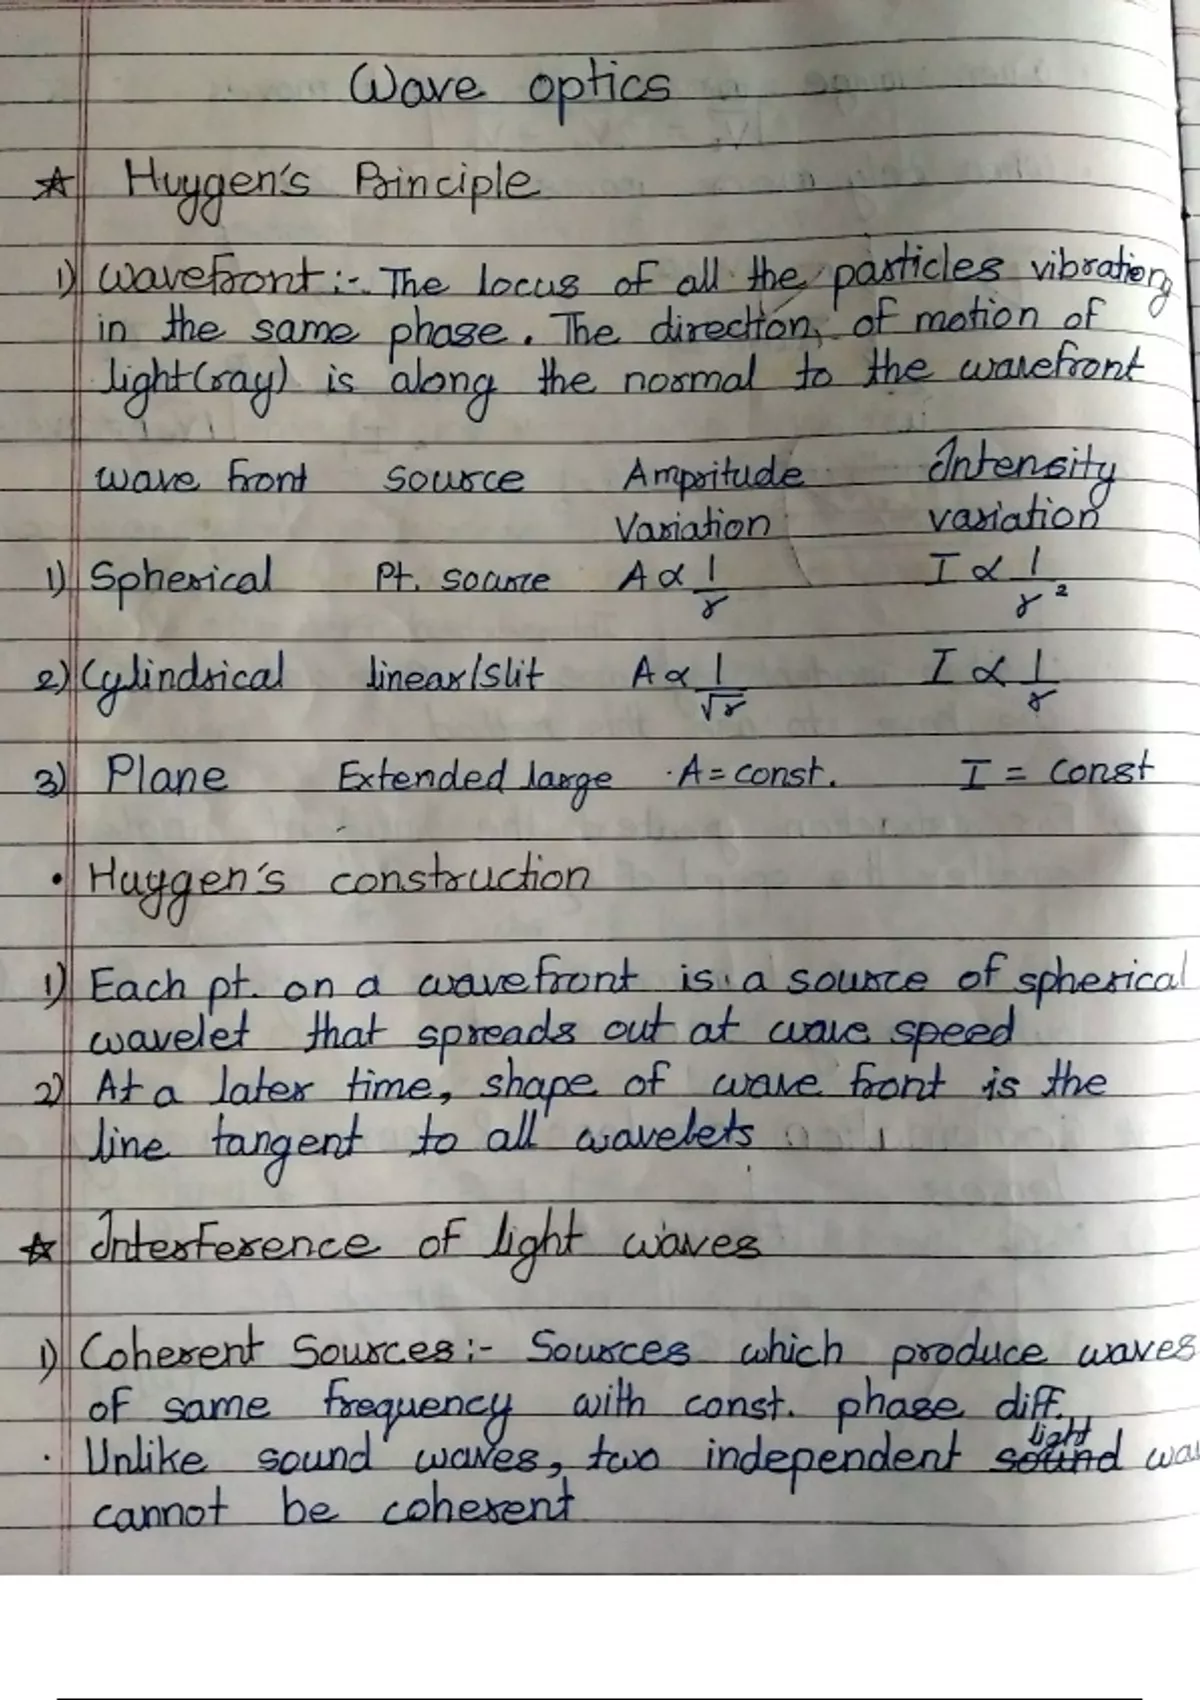 Wave optics
☆ Huygen's Principle
1) Wavefront :- The locus of all the particles vibrating
in the same phase. The direction, of motion of
light (ray) is along the normal to the wavefront
wave front source Ampritude Intensity
Variation variation
1) Spherical Pt. source A ∝ 1/r I ∝ 1/r²
2) Cylindrical linear/slit A ∝ 1/√r I ∝ 1/r
3) Plane Extended large A = const. I = const
• Huygen's construction
1) Each pt. on a wavefront is a source of spherical
wavelet that spreads out at wave speed
2) At a later time, shape of wave front is the
line tangent to all wavelets
☆ Interference of light waves
1) Coherent Sources :- Sources which produce waves
of same frequency with const. phase diff.
• Unlike sound waves, two independent sound light
cannot be coherent